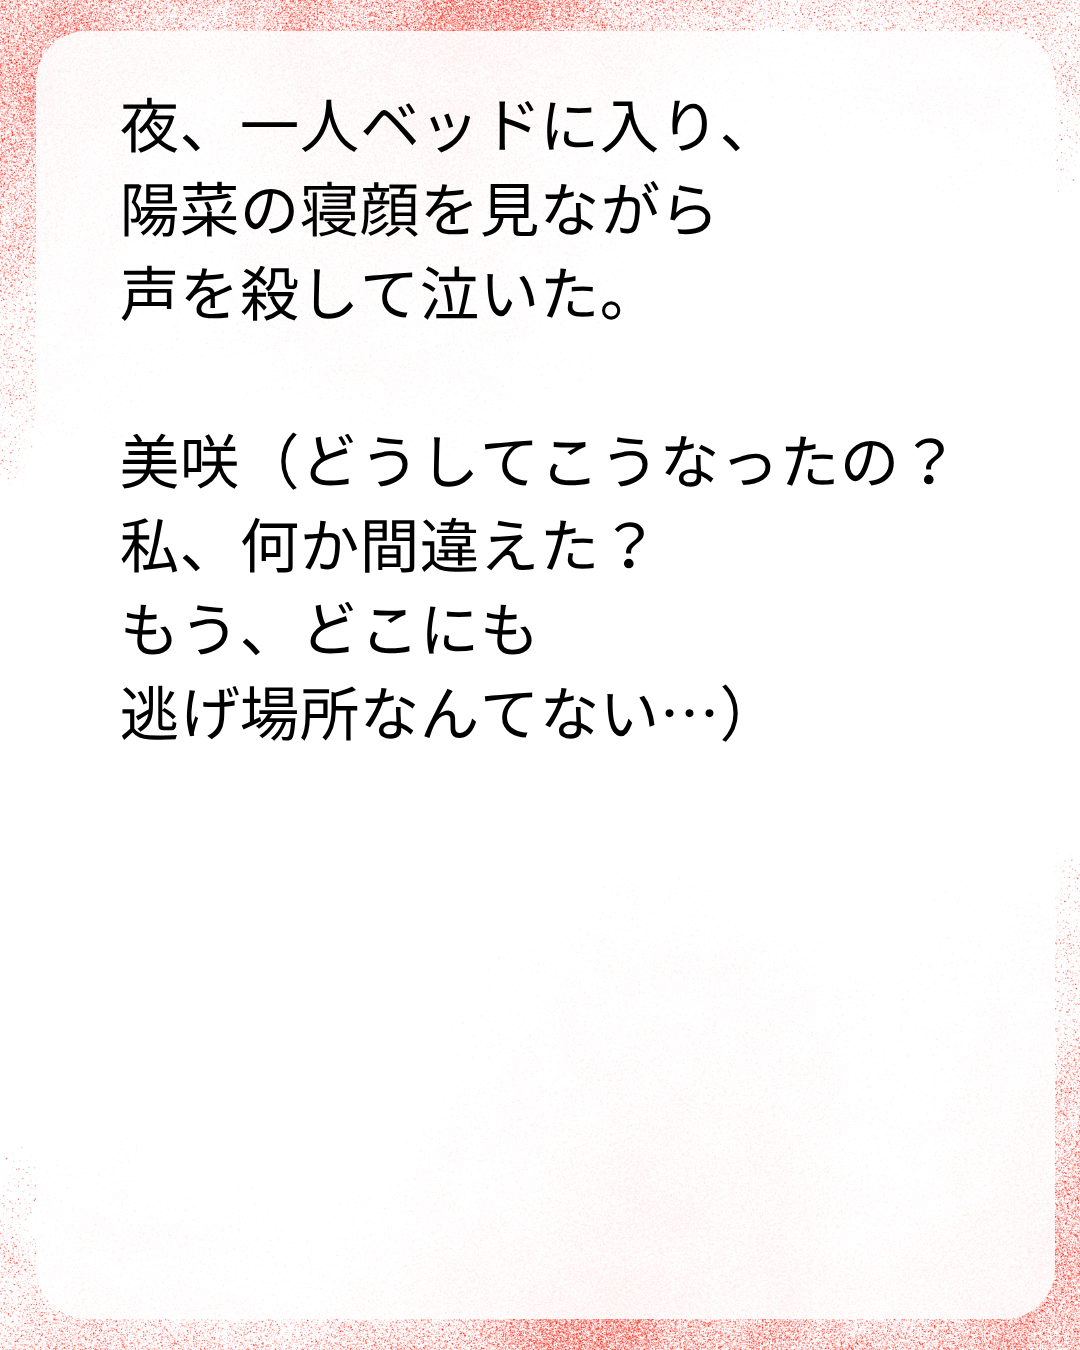 夜、一人ベッドに入り、
陽菜の寝顔を見ながら
声を殺して泣いた。
美咲（どうしてこうなったの？
私、何か間違えた？
もう、どこにも
逃げ場所なんてない…）